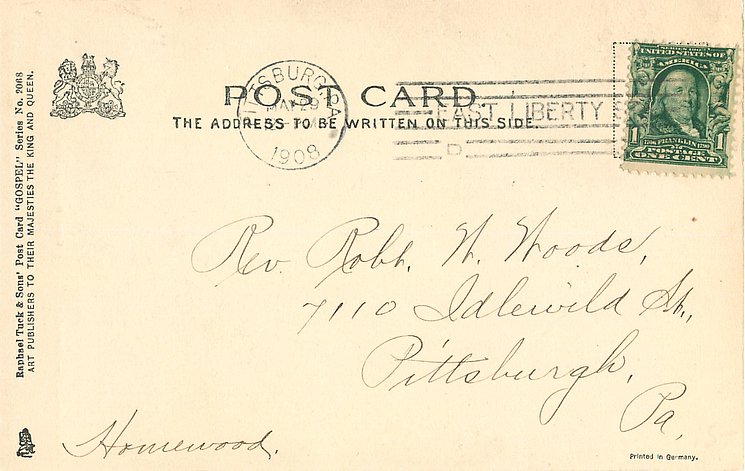 Raphael Tuck & Sons' Post Card "GOSPEL" Series No. 2068
ART PUBLISHERS TO THEIR MAJESTIES THE KING AND QUEEN.
POST CARD.
THE ADDRESS TO BE WRITTEN ON THIS SIDE.
PITTSBURG, PA.
1908
EAST LIBERTY
UNITED STATES OF
AMERICA
1 FRANKLIN 1
POSTAGE
ONE CENT
Rev. Robt. W. Woods,
7110 Idlewild St.,
Pittsburgh,
Pa.
Homewood.
Printed in Germany.